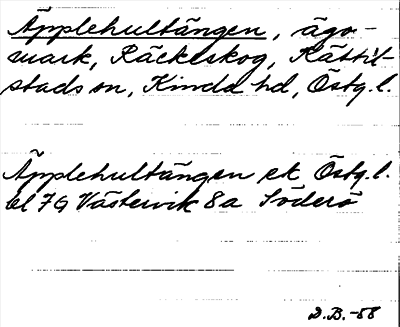 Äpplehultängen, ägo-
mark, Räckeskog, Kättil-
stads sn, Kinda hd, Östg.l.
Äpplehultängen ek Östg.l.
bl 7G Västervik 8a Söderö
D.B.-58